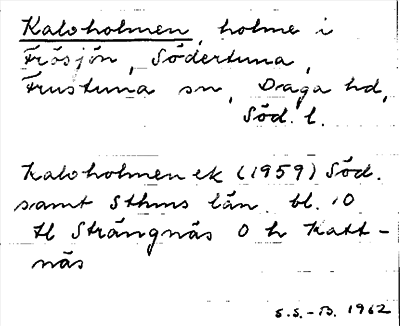 Kalvholmen, holme i
Frösjön, Södertuna,
Frustuna sn, Daga hd,
Söd. l.
Kalvholmen ek (1959) Söd.
samt Sthms län. bl. 10
H Strängnäs O h Katt-
näs
S.S.-B. 1962